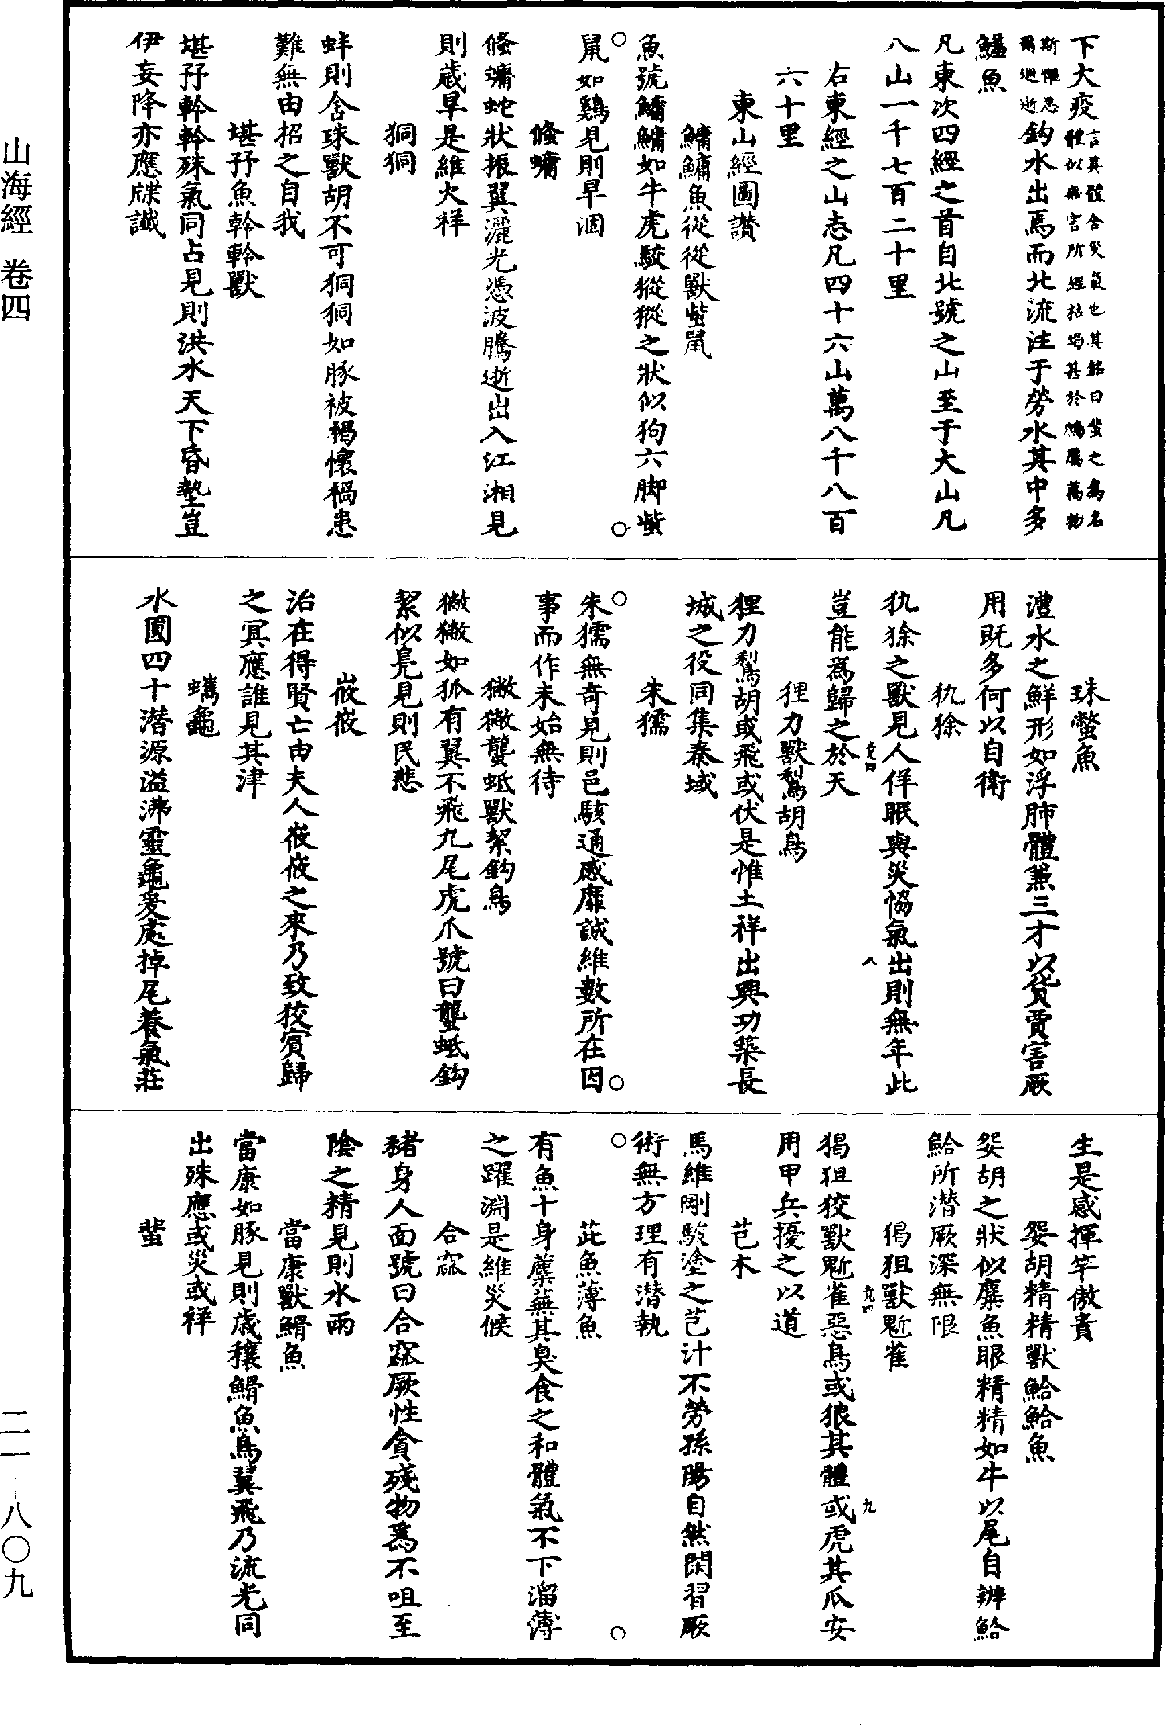 山海經 卷四
二一·八〇九
下大疫言其體含災氣也其銘曰蜚之為名
體似無害所經枯竭甚於鴆厲萬物
斯懼思爾遐逝鈎水出焉而北流注于勞水其中多
鱃魚
凡東次四經之首自北號之山至于大山凡
八山一千七百二十里
右東經之山志凡四十六山萬八千八百
六十里
東山經圖讚
鱅鱅魚從從獸蚩鼠
魚號鱅鱅如牛虎駮㹤㹤之狀似狗六脚蚩
鼠如鷄見則旱涸
偹蟰
偹蟰蛇狀振翼灑光憑波騰逝出入江湘見
則歲旱是維火祥
狪狪
蚌則含珠獸胡不可狪狪如豚被褐懷禍患
難無由招之自我
堪㺱魚軨軨獸
堪㺱軨軨殊氣同占見則洪水天下昏墊豈
伊妄降亦應牒讖
珠蟞魚
澧水之鮮形如浮肺體兼三才以貨賈害厥
用旣多何以自衛
犰狳
犰狳之獸見人佯眠與災協氣出則無年此
豈能為歸之於天
狸力獸鴸胡鳥
狸力鴸胡或飛或伏是惟土祥出興功築長
城之役同集秦域
朱獳
朱獳無奇見則邑駭通感靡誠維數所在因
事而作未始無待
獙獙蠪蚳獸絜鈎鳥
獙獙如狐有翼不飛九尾虎爪號曰蠪蚳鈎
絜似鳧見則民悲
峳峳
治在得賢亡由夫人峳峳之來乃致狡賓歸
之冥應誰見其津
蠵龜
水圓四十潛源溢沸靈龜爰處掉尾養氣莊
生是感揮竿傲貴
妴胡精精獸鮯鮯魚
妴胡之狀似麋魚眼精精如牛以尾自辨鮯
鮯所潛厥深無限
猲狙獸鬿雀
猲狙狡獸鬿雀惡鳥或狼其體或虎其爪安
用甲兵擾之以道
芑木
馬維剛駿塗之芑汁不勞孫陽自然閑習厥
術無方理有潛執
茈魚薄魚
有魚十身蘪蕪其臭食之和體氣不下溜薄
之躍淵是維災候
合窳
豬身人面號曰合窳厥性貪殘物為不咀至
陰之精見則水雨
當康獸䱻魚
當康如豚見則歲穰䱻魚鳥翼飛乃流光同
出殊應或災或祥
蜚